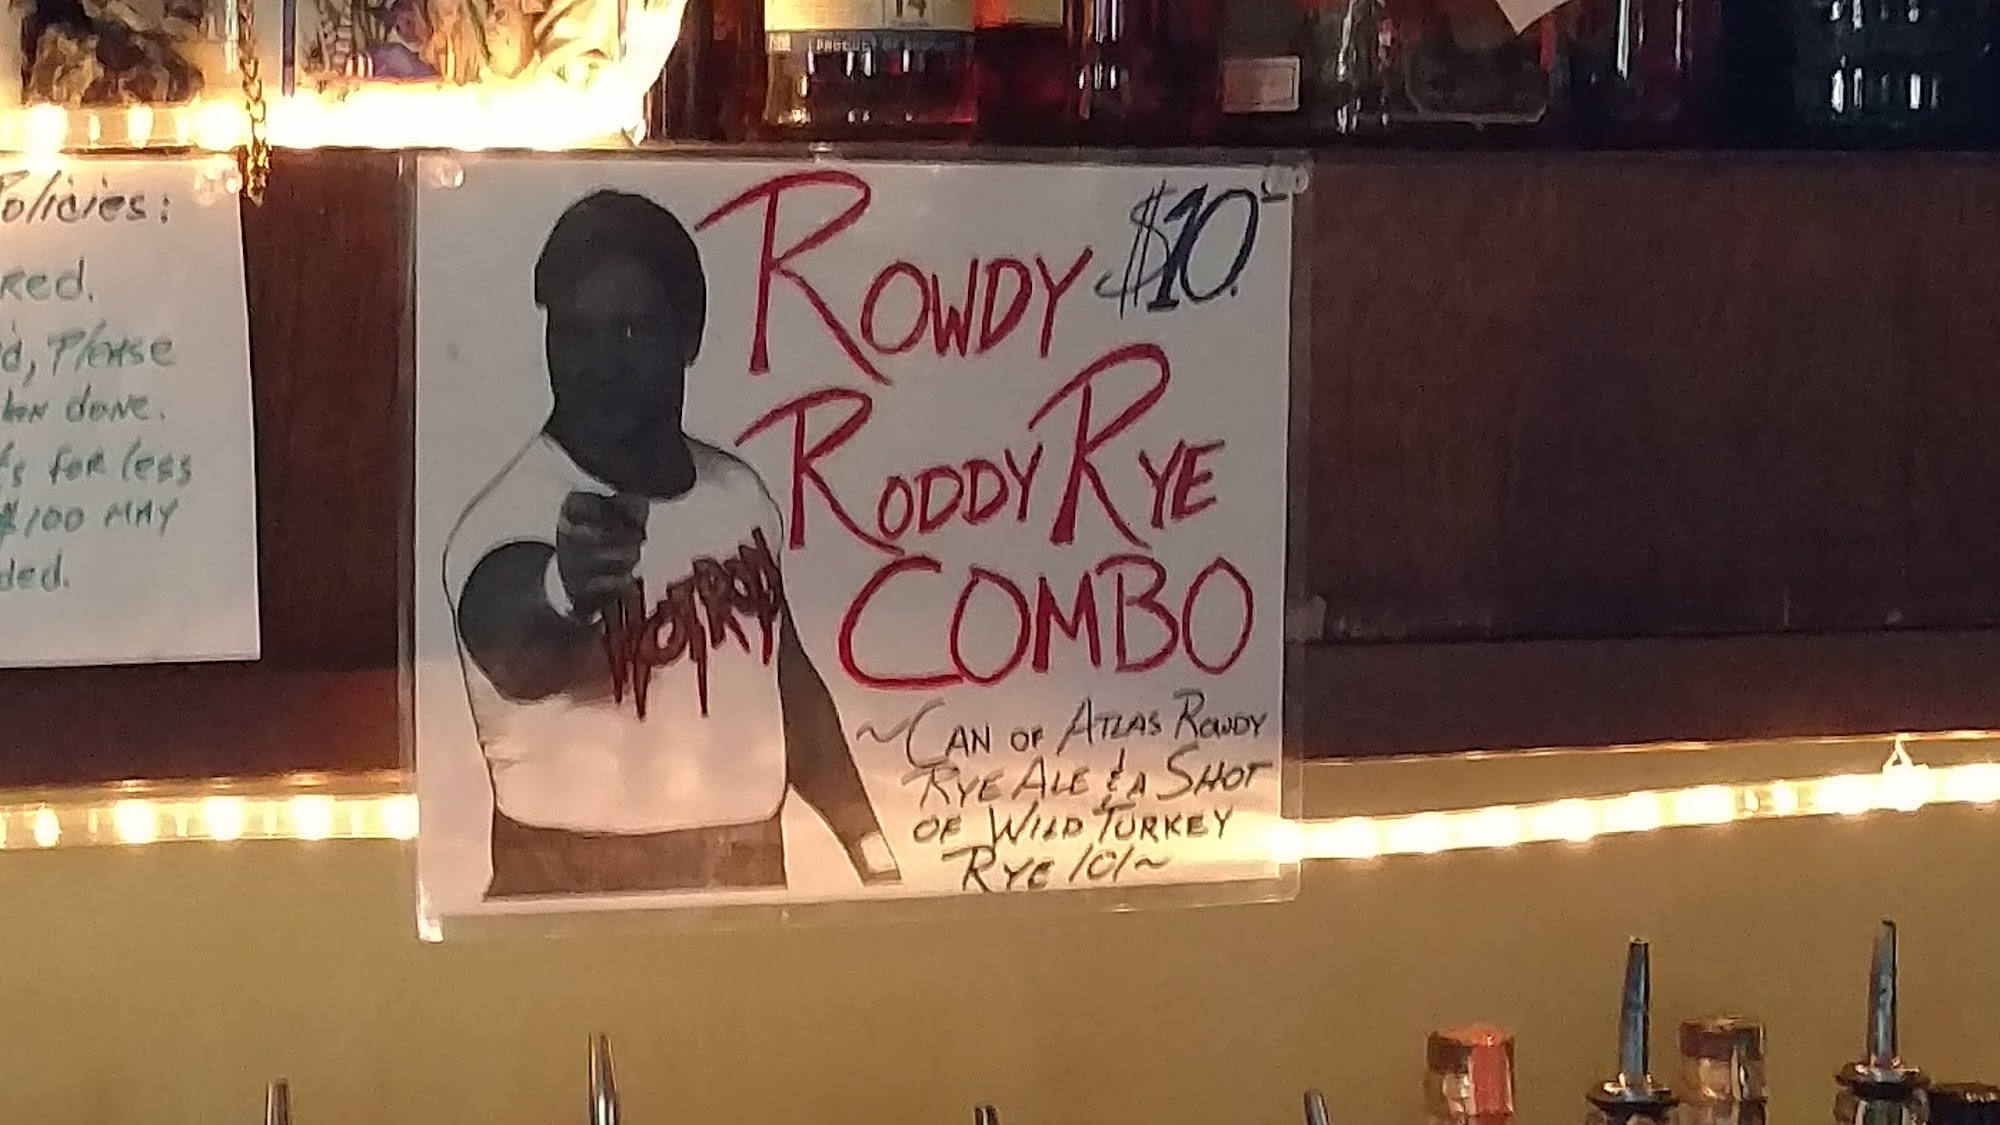 PRODUCT OF
Policies:
Please
done.
for less
$100 MAY
ROWDY $10.
RODDY RYE
COMBO
HOT ROD
~CAN OF ATLAS ROWDY
RYE ALE & A SHOT
OF WILD TURKEY
RYE 101~